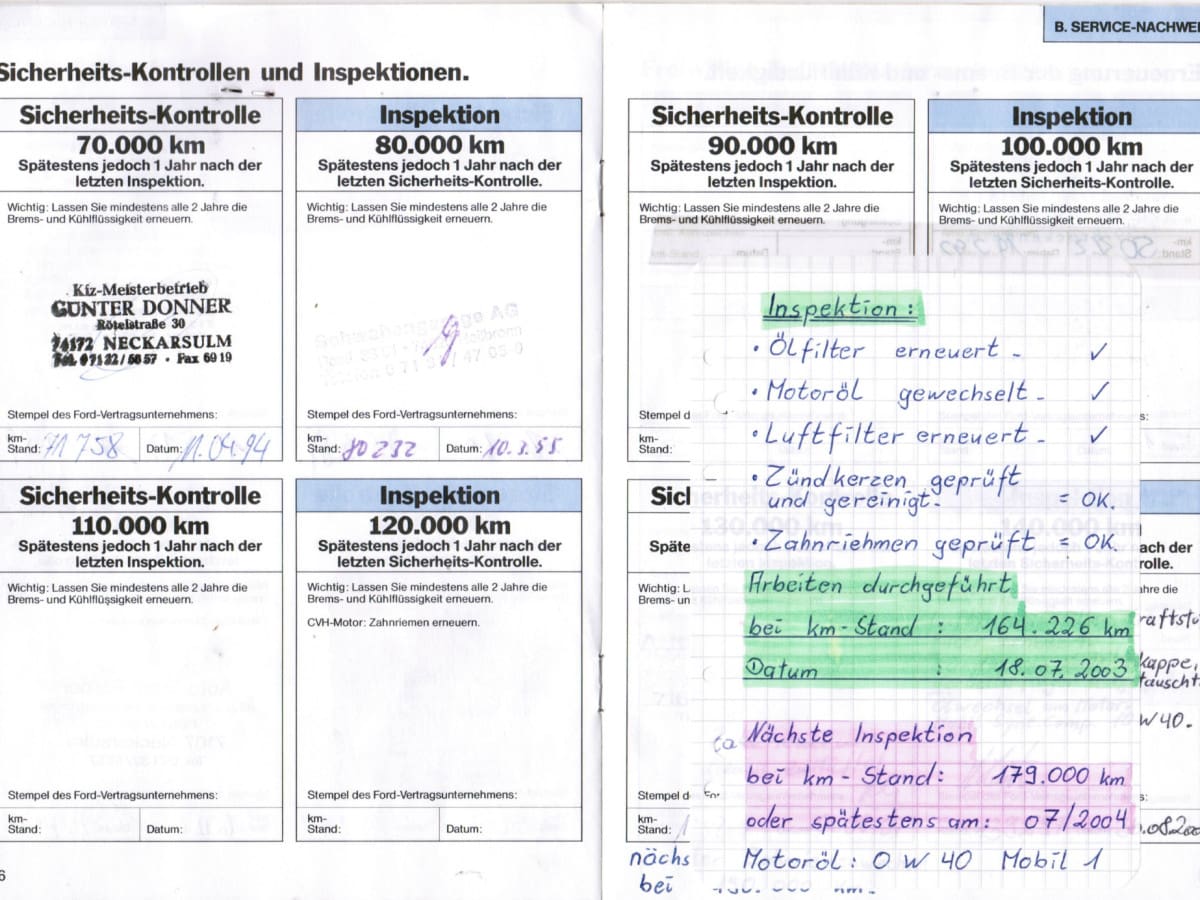 B. SERVICE-NACHWEI
Sicherheits-Kontrollen und Inspektionen.
Sicherheits-Kontrolle
70.000 km
Spätestens jedoch 1 Jahr nach der
letzten Inspektion.
Wichtig: Lassen Sie mindestens alle 2 Jahre die
Brems- und Kühlflüssigkeit erneuern.
Kfz-Meisterbetrieb
GÜNTER DONNER
Rötelstraße 30
74172 NECKARSULM
Tel. 07132/5657 · Fax 6919
Stempel des Ford-Vertragsunternehmens:
km-
Stand: 71 758 Datum: 11.04.94
Inspektion
80.000 km
Spätestens jedoch 1 Jahr nach der
letzten Sicherheits-Kontrolle.
Wichtig: Lassen Sie mindestens alle 2 Jahre die
Brems- und Kühlflüssigkeit erneuern.
Stempel des Ford-Vertragsunternehmens:
km-
Stand: 80232 Datum: 10.3.95
Sicherheits-Kontrolle
90.000 km
Spätestens jedoch 1 Jahr nach der
letzten Inspektion.
Wichtig: Lassen Sie mindestens alle 2 Jahre die
Brems- und Kühlflüssigkeit erneuern.
Stempel d
km-
Stand:
Inspektion
100.000 km
Spätestens jedoch 1 Jahr nach der
letzten Sicherheits-Kontrolle.
Wichtig: Lassen Sie mindestens alle 2 Jahre die
Brems- und Kühlflüssigkeit erneuern.
s:
Sicherheits-Kontrolle
110.000 km
Spätestens jedoch 1 Jahr nach der
letzten Inspektion.
Wichtig: Lassen Sie mindestens alle 2 Jahre die
Brems- und Kühlflüssigkeit erneuern.
Stempel des Ford-Vertragsunternehmens:
km-
Stand: Datum:
Inspektion
120.000 km
Spätestens jedoch 1 Jahr nach der
letzten Sicherheits-Kontrolle.
Wichtig: Lassen Sie mindestens alle 2 Jahre die
Brems- und Kühlflüssigkeit erneuern.
CVH-Motor: Zahnriemen erneuern.
Stempel des Ford-Vertragsunternehmens:
km-
Stand: Datum:
Inspektion:
· Ölfilter erneuert - ✓
· Motoröl gewechselt - ✓
· Luftfilter erneuert - ✓
· Zündkerzen geprüft
und gereinigt. = OK.
· Zahnriemen geprüft = OK.
Arbeiten durchgeführt
bei km-Stand : 164.226 km
Datum : 18.07.2003
Nächste Inspektion
bei km-Stand: 179.000 km
oder spätestens am: 07/2004
Motoröl: 0 W 40 Mobil 1
Sicherheits-Kontrolle
130.000 km
140.000 km
Späte
Wichtig: L
Brems- un
Stempel de
km-
Stand:
ach der
rolle.
hre die
raftstu
kappe,
tauscht
W 40.
s:
.08.200
nächs
bei
6